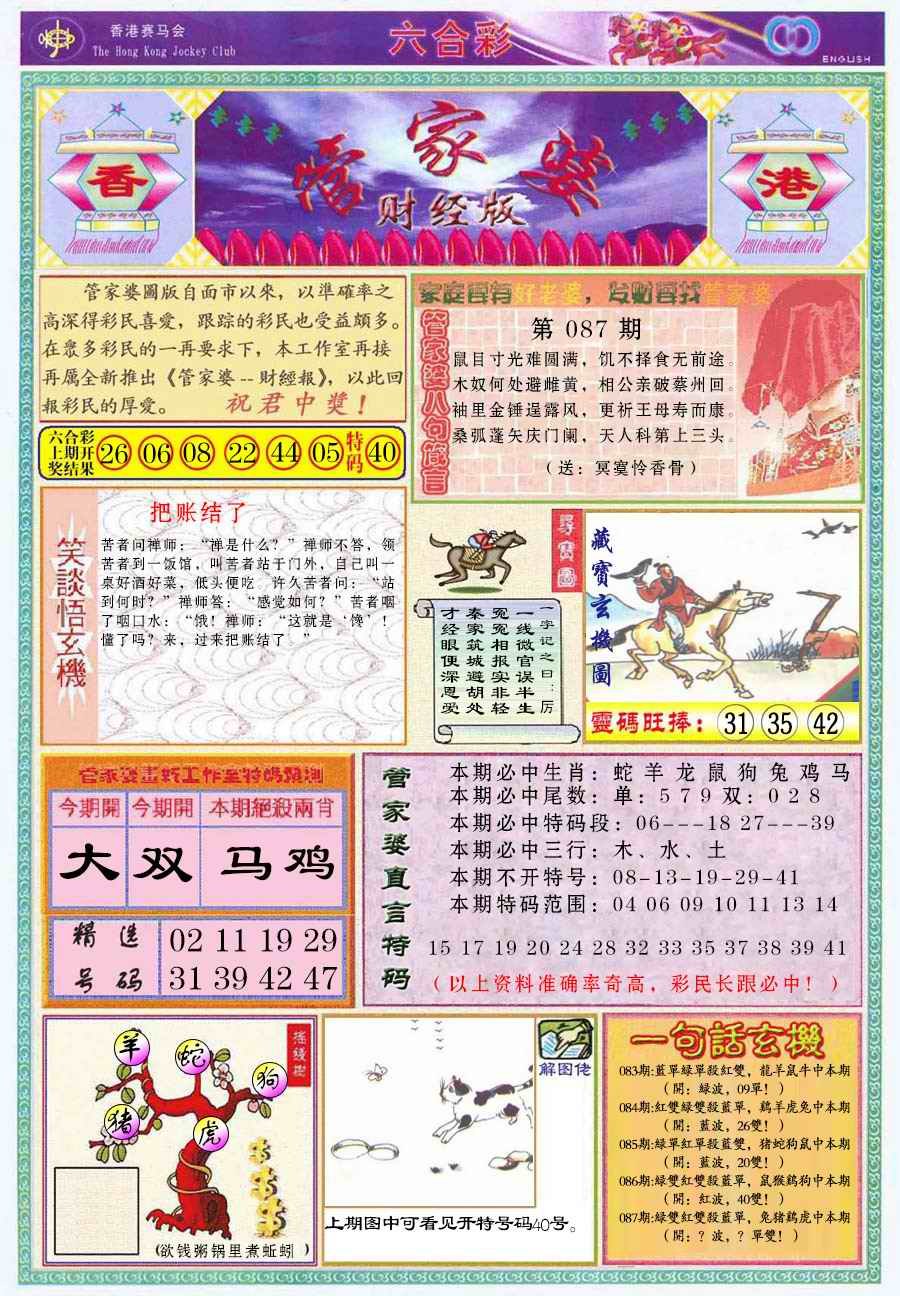 香港赛马会
The Hong Kong Jockey Club
六合彩
ENGLISH
香
管家婆
财经版
港
管家婆圖版自面市以來，以準確率之
高深得彩民喜愛，跟踪的彩民也受益頗多。
在衆多彩民的一再要求下，本工作室再接
再厲全新推出《管家婆--財經報》，以此回
報彩民的厚愛。 祝君中獎！
六合彩
上期开
奖结果
26 06 08 22 44 05 特码 40
家庭要有好老婆，发财要找管家婆
管家婆八句箴言
第 087 期
鼠目寸光难圆满，饥不择食无前途。
木奴何处避雌黄，相公亲破蔡州回。
袖里金锤逞露风，更祈王母寿而康。
桑弧蓬矢庆门阑，天人科第上三头。
（送：冥寞怜香骨）
笑談悟玄機
把账结了
苦者问禅师：“禅是什么？”禅师不答，领
苦者到一饭馆，叫苦者站于门外，自己叫一
桌好酒好菜，低头便吃。许久苦者问：“站
到何时？”禅师答：“感觉如何？”苦者咽
了咽口水：“饿！禅师：“这就是‘馋’！
懂了吗？来，过来把账结了。”
尋寶圖
一字记之曰：厉
一线微官误半生
冤冤相报实非轻
秦家筑城避胡处
才经眼便深恩爱
藏寶玄機圖
靈碼旺捧：31 35 42
管家婆畫報工作室特碼預測
今期開 今期開 本期絕殺兩肖
大 双 马鸡
精选
号码
02 11 19 29
31 39 42 47
管家婆直言特码
本期必中生肖：蛇 羊 龙 鼠 狗 兔 鸡 马
本期必中尾数：单：5 7 9 双：0 2 8
本期必中特码段：06---18 27---39
本期必中三行：木、水、土
本期不开特号：08-13-19-29-41
本期特码范围：04 06 09 10 11 13 14
15 17 19 20 24 28 32 33 35 37 38 39 41
（以上资料准确率奇高，彩民长跟必中！）
摇錢樹
羊
蛇
狗
猪
虎
(欲钱粥锅里煮蚯蚓 )
解图佬
上期图中可看见开特号码40号。
一句話玄機
083期:藍單綠單殺紅雙，龍羊鼠牛中本期
（開：綠波，09單！）
084期:紅雙綠雙殺藍單，鷄羊虎兔中本期
（開：藍波，26雙！）
085期:綠單紅單殺藍雙，猪蛇狗鼠中本期
（開：藍波，20雙！）
086期:綠雙紅雙殺藍單，鼠猴鷄狗中本期
（開：紅波，40雙！）
087期:綠雙紅雙殺藍單，兔猪鷄虎中本期
（開：？波，？單雙！）